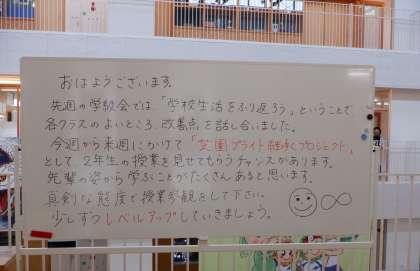 おはようございます。
先週の学級会では、「学校生活をふり返ろう」ということで
各クラスのよいところ、改善点を話し合いました。
今週から来週にかけて「芝園プライド継承プロジェクト」
として、2年生の授業を見せてもらうチャンスがあります。
先輩の姿から学ぶことがたくさんあると思います。
真剣な態度で授業参観をして下さい。
少しずつレベルアップしていきましょう。